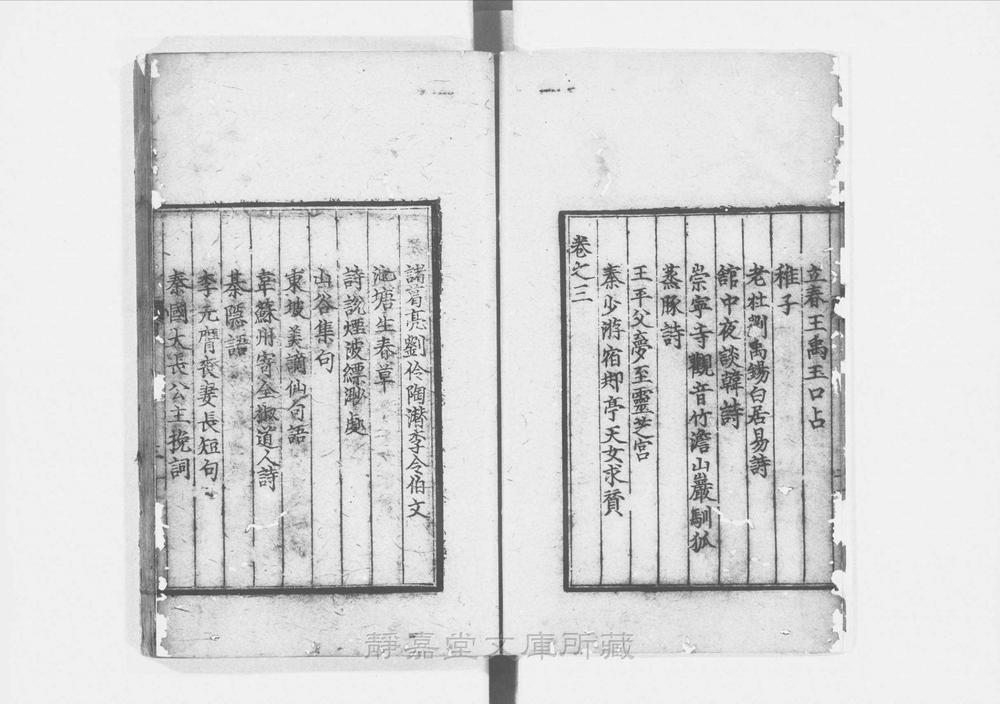 立春王禹玉口占
稚子
老杜劉禹錫白居易詩
舘中夜談韓詩
崇寧寺觀音竹澹山巖馴狐
蒸豚詩
王平父夢至靈芝宮
秦少游宿郭亭天女求賛
卷之三
諸葛亮劉伶陶潛李令伯文
池塘生春草
詩說煙波縹渺處
山谷集句
東坡美謫仙句語
韋蘇州寄全椒道人詩
棊隱語
李元膺喪妻長短句
秦國大長公主挽詞
靜嘉堂文庫所藏